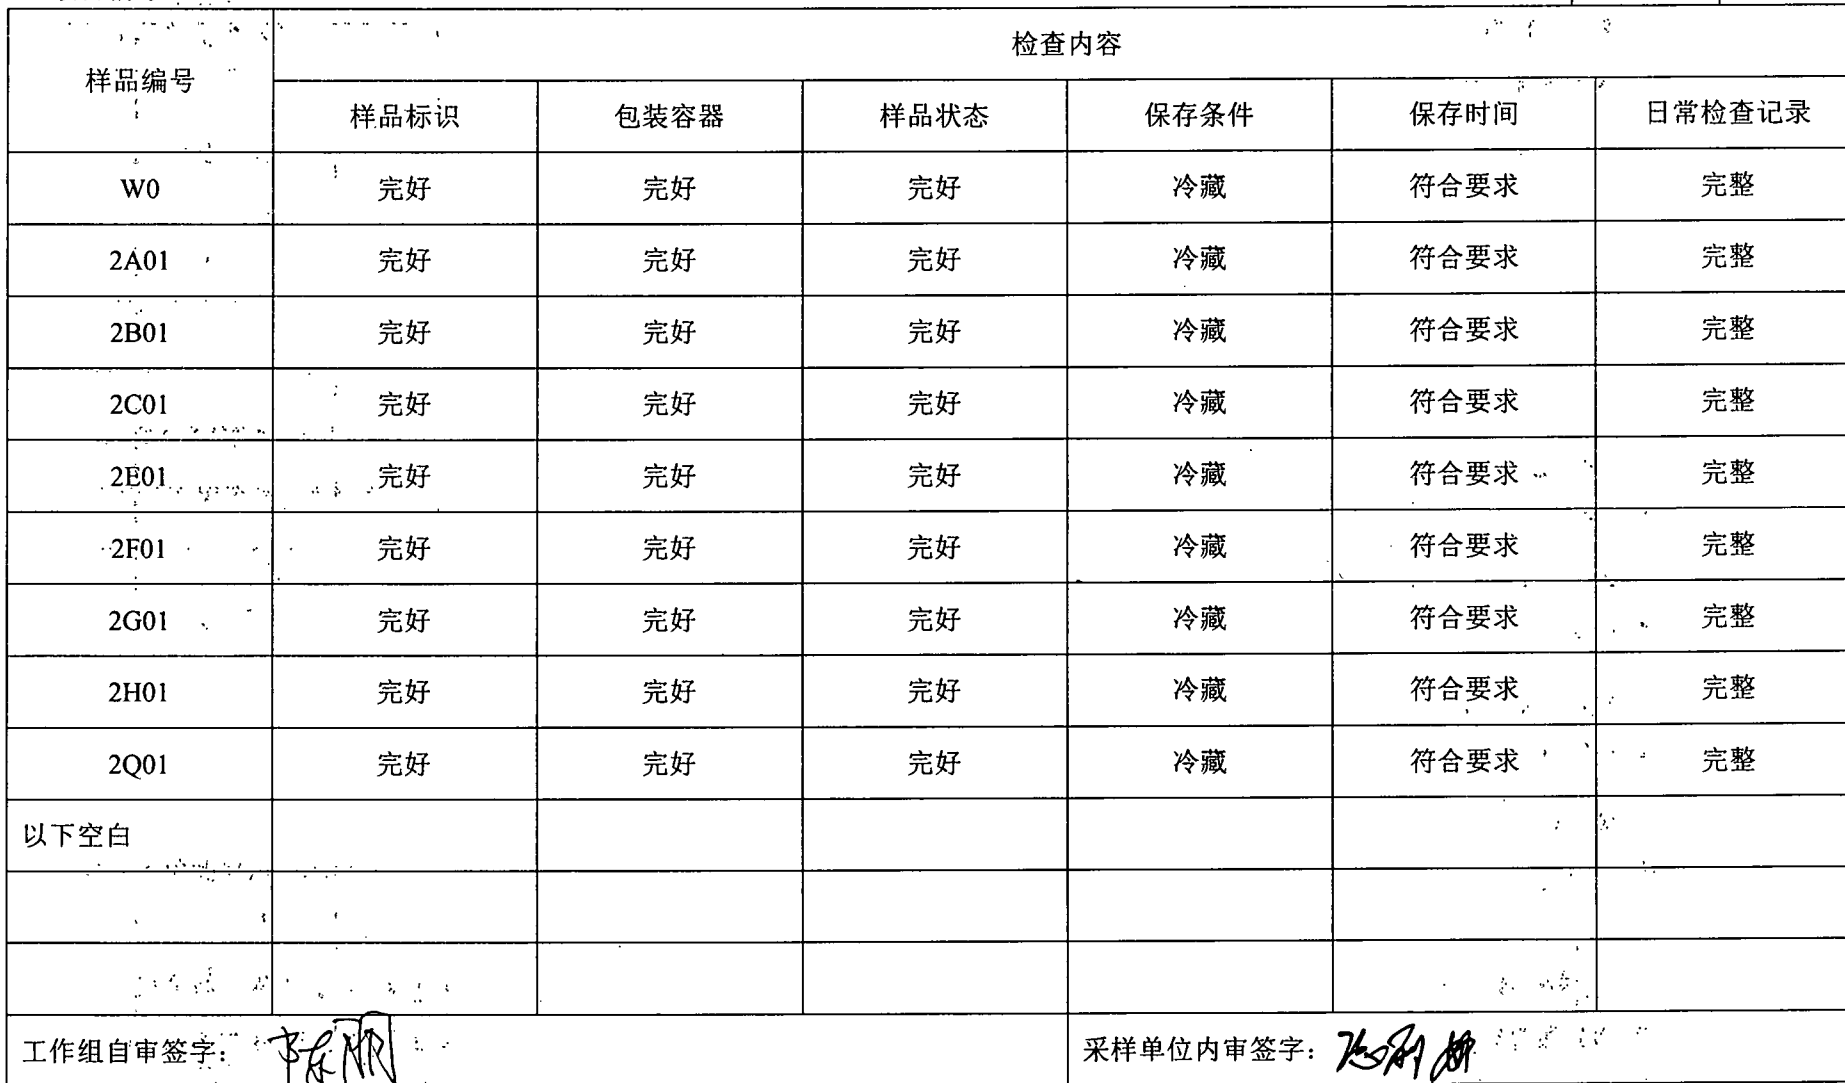 样品编号 检查内容
样品标识 包装容器 样品状态 保存条件 保存时间 日常检查记录
W0 完好 完好 完好 冷藏 符合要求 完整
2A01 完好 完好 完好 冷藏 符合要求 完整
2B01 完好 完好 完好 冷藏 符合要求 完整
2C01 完好 完好 完好 冷藏 符合要求 完整
2E01 完好 完好 完好 冷藏 符合要求 完整
2F01 完好 完好 完好 冷藏 符合要求 完整
2G01 完好 完好 完好 冷藏 符合要求 完整
2H01 完好 完好 完好 冷藏 符合要求 完整
2Q01 完好 完好 完好 冷藏 符合要求 完整
以下空白
工作组自审签字： 采样单位内审签字：